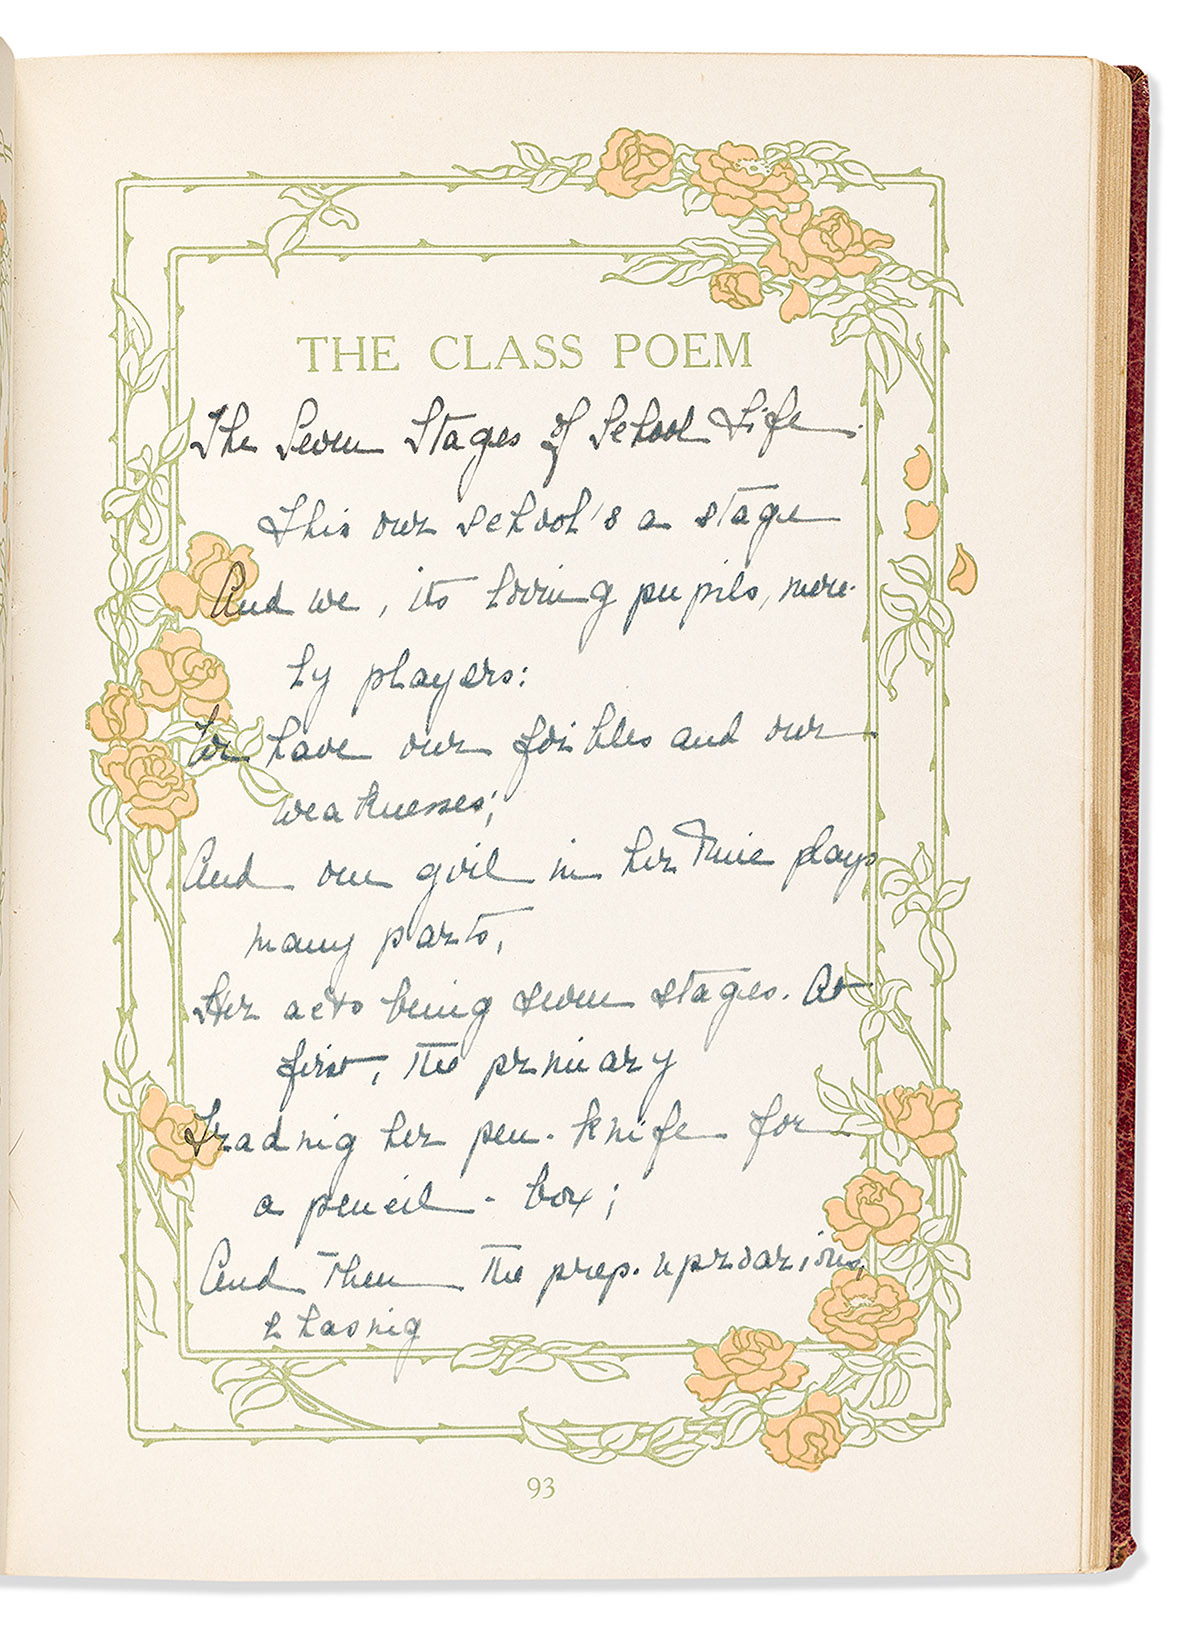 THE CLASS POEM
The Seven Stages of School Life.
This our school's a stage
And we, its loving pupils, mere-
ly players:
We have our foibles and our
weaknesses;
And one girl in her time plays
many parts,
Her acts being seven stages. At
first, the primary
Trading her pen-knife for
a pencil-box;
And then the prep. uproarious,
chasing
93